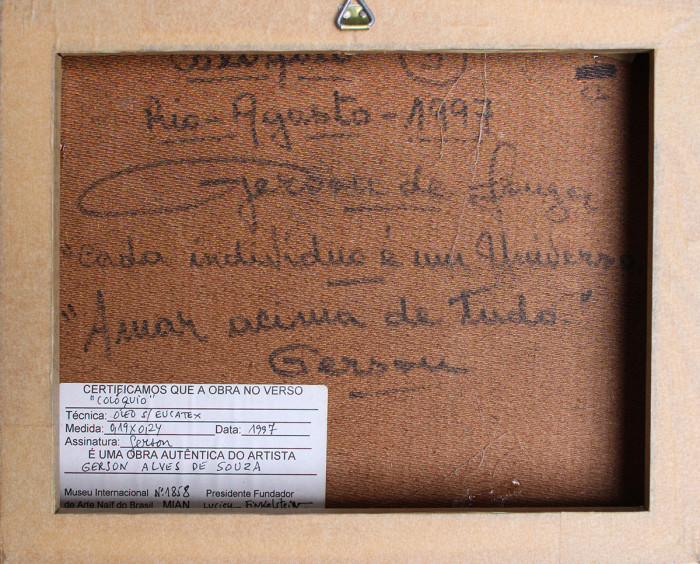 Colóquio (3)
Rio-Agosto-1997
Gerson de Souza
"cada indivíduo é um Universo
"Amar acima de Tudo."
Gerson
CERTIFICAMOS QUE A OBRA NO VERSO
"COLÓQUIO"
Técnica: ÓLEO S/ EUCATEX
Medida: 0,19X0,24 Data: 1997
Assinatura: Gerson
É UMA OBRA AUTÊNTICA DO ARTISTA
GERSON ALVES DE SOUZA
Museu Internacional Nº1858 Presidente Fundador
de Arte Naïf do Brasil MIAN Lucien Finkelstein